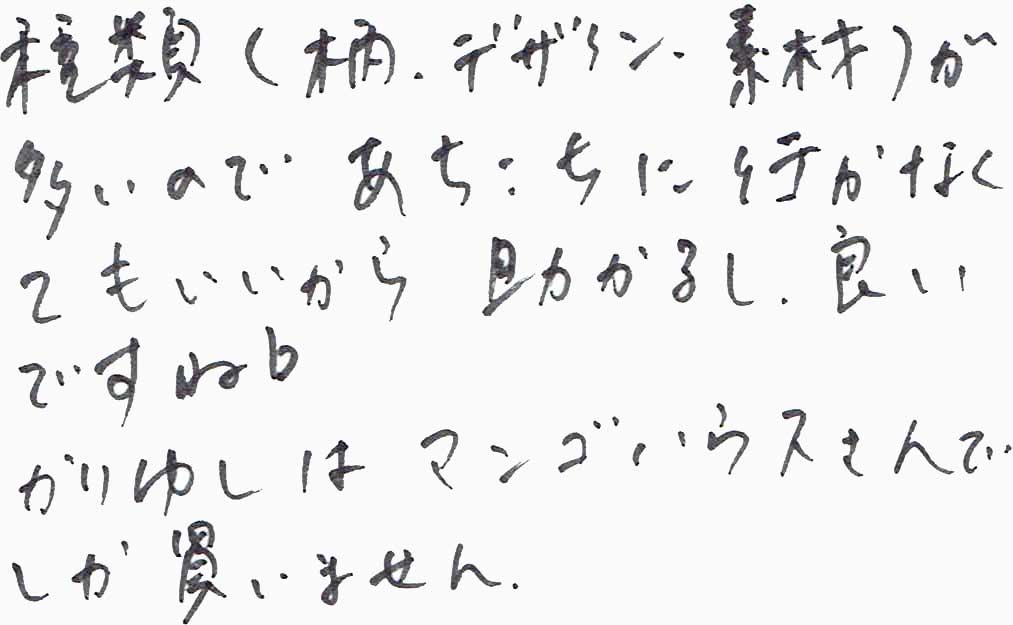 種類(柄.デザイン.素材)が
多いので あちこちに行かなく
てもいいから 助かるし.良い
ですね♭
かりゆしは マンゴハウスさんで
しか買いません.